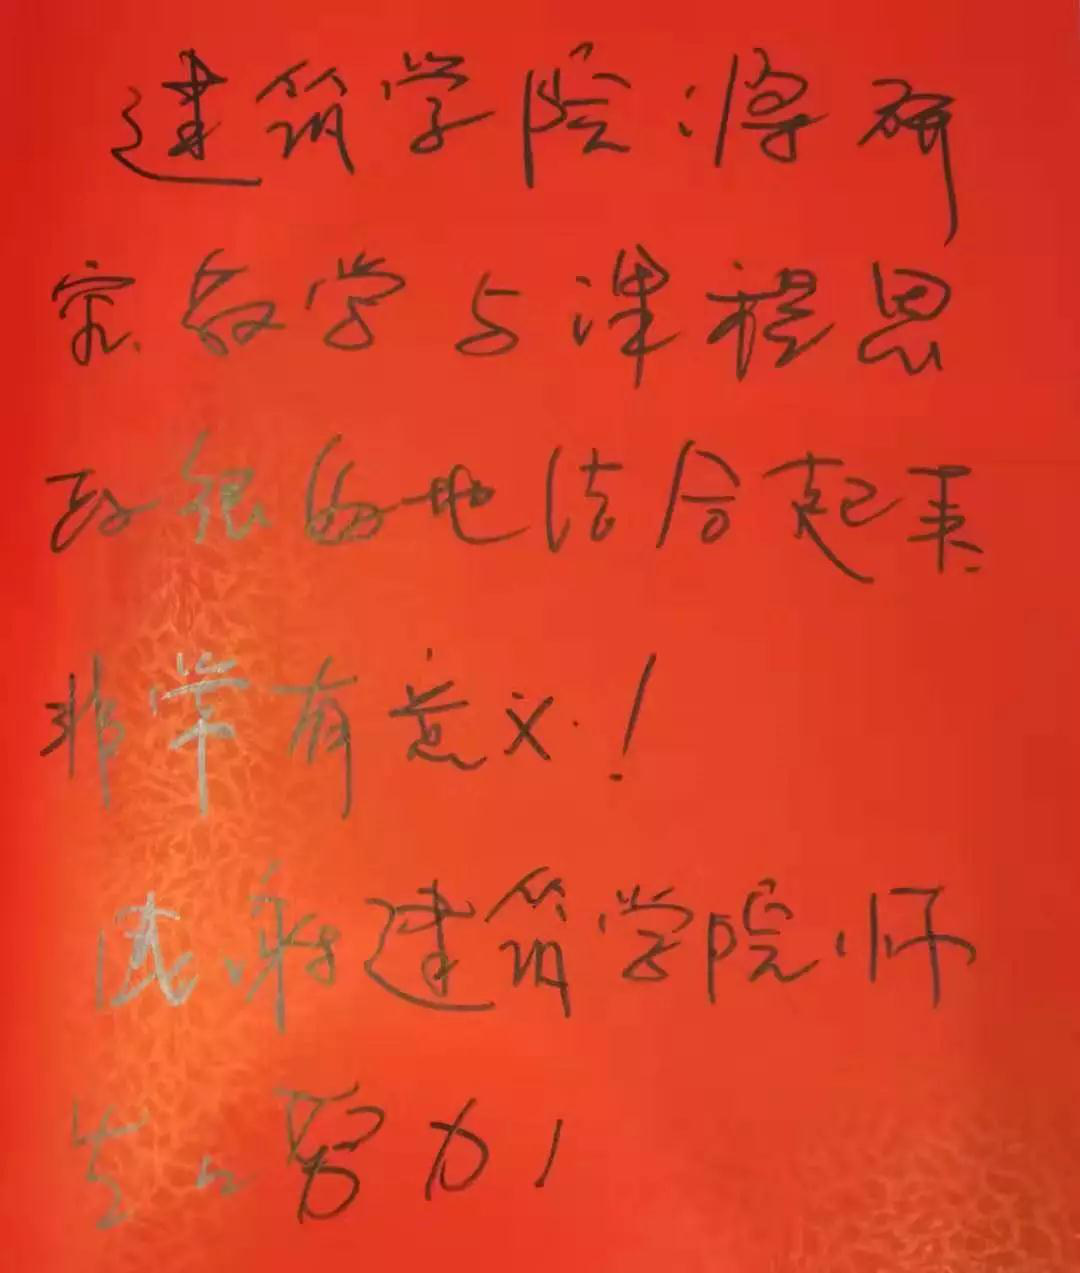 建筑学院:将研
究教学与课程思
政很好地结合起来
非常有意义!
感谢建筑学院师
生的努力!